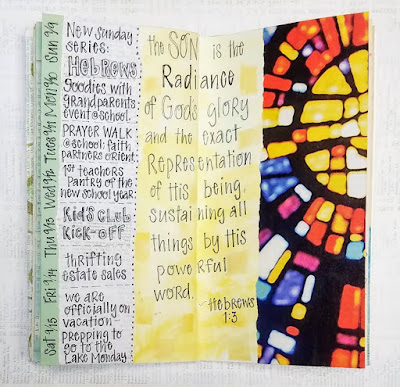 Sun 9/9
Mon 9/10
Tues 9/11
Wed 9/12
Thu 9/13
Fri 9/14
Sat 9/15
New Sunday
series:
HEBREWS
Goodies with
grandparents
event@school.
PRAYER WALK
@school; faith
partners orient.
1st teachers
Pantry of the
new school year
KID'S CLUB
KICK-OFF
thrifting
estate sales
we are
officially on
vacation-
prepping to
go to the
Lake Monday
the SON is the
Radiance
of God's glory
and the exact
Representation
of His being,
sustaining all
things by His
powerful
word.
-Hebrews
1:3